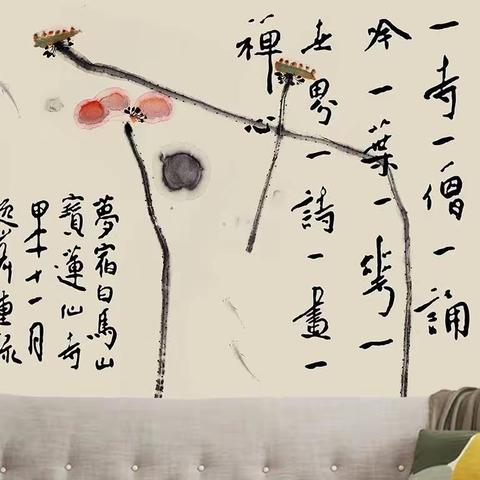 一寺一僧一誦
吟一葉一華一
世界一詩一畫一
禪心
夢宿白馬山
寶蓮仙寺
甲午十一月